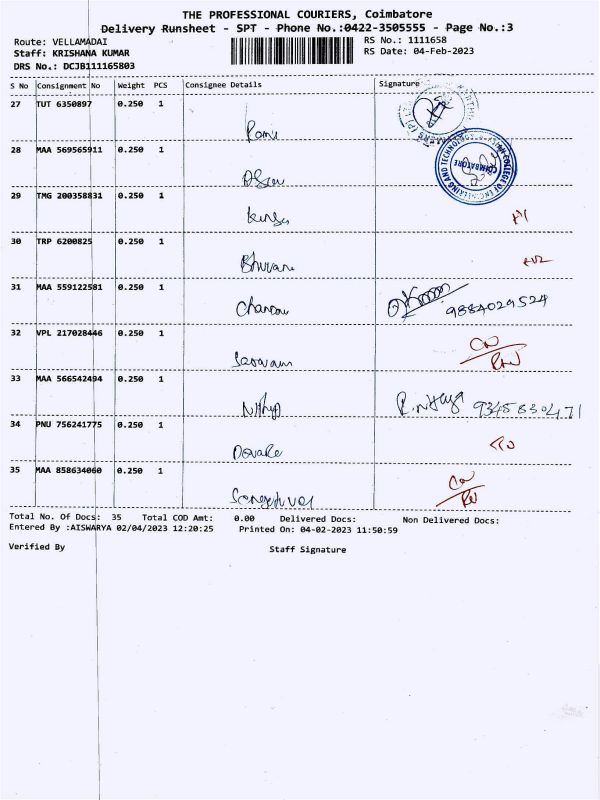 THE PROFESSIONAL COURIERS, Coimbatore
Delivery Runsheet - SPT - Phone No.:0422-3505555 - Page No.:3
Route: VELLAMADAI RS No.: 1111658
Staff: KRISHANA KUMAR RS Date: 04-Feb-2023
DRS No.: DCJB111165803
S No Consignment No Weight PCS Consignee Details Signature
27 TUT 6350897 0.250 1
Ramu
28 MAA 569565911 0.250 1
29 TMG 200358831 0.250 1
30 TRP 6200825 0.250 1
Bhuvane
31 MAA 559122581 0.250 1
Chandru 9884029524
32 VPL 217028446 0.250 1
Saravanan
33 MAA 566542494 0.250 1
Nithya R.Nithya 9345830471
34 PNU 756241775 0.250 1
35 MAA 858634060 0.250 1
Total No. Of Docs: 35 Total COD Amt: 0.00 Delivered Docs: Non Delivered Docs:
Entered By :AISWARYA 02/04/2023 12:20:25 Printed On: 04-02-2023 11:50:59
Verified By Staff Signature